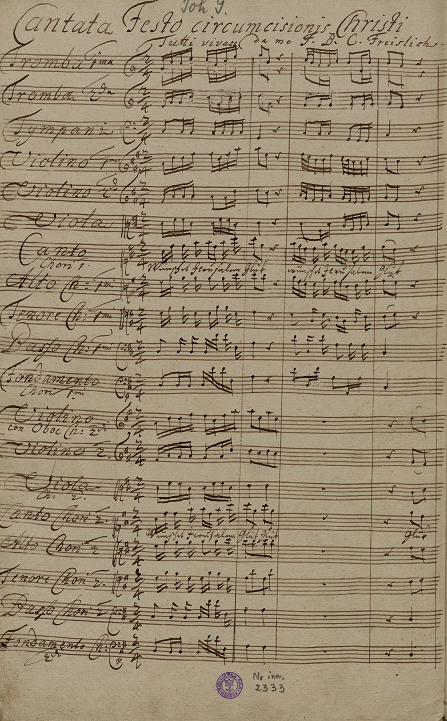 Joh. J.
Cantata Festo circumcisionis Christi
Tutti vivace da me F. B. C. Freislich
Tromba 1ma
Tromba 2da
Tympani
Violino 1mo
Violino 2do
Viola
Canto
Chori 1
Wünschet Jerusalem Glück wünschet Jerusalem Glück
Alto Ch: 1mi
Tenore Ch: 1mi
Basso Ch: 1mi
Fondamento
Chori 1mi
Violino
con Oboe Ch: 2di
Violino 2
Viola
Ch: 2.
Canto Chori 2.
Wünschet Jerusalem Glück Glück Glück
Alto Chori 2
Tenore Chori 2.
Basso Chori 2
Fondamento Ch:
2di
Nr inw.
2333